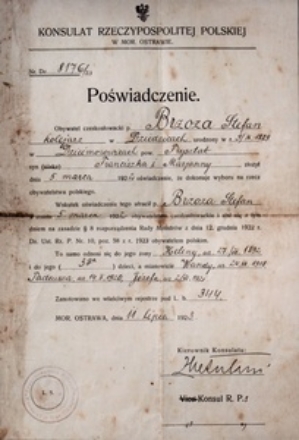 KONSULAT RZECZYPOSPOLITEJ POLSKIEJ
W MOR. OSTRAWIE.
Nr. Dz. 8176/23
Poświadczenie.
Obywatel czechosłowacki p. Brzoza Stefan
kolejarz w urodzony w r.
w pow.
syn (córka) Franciszka i Maryanny
dnia 5 marca oświadczenie, że dokonuje wyboru na rzecz
obywatelstwa polskiego.
Wskutek oświadczenia tego utracił p. Brzoza Stefan
5 marca obywatelstwo czechosłowackie i stał się z tym
dniem na zasadzie § 6 rozporządzenia Rady Ministrów z dnia 12. grudnia 1922 r.
Dz. Ust. Rz. P. Nr. 10, poz. 59 z r. 1923 obywatelem polskim.
To samo odnosi się do jego żony Heleny ur.
i do jego dzieci, a mianowicie Wandy ur.
Tadeusza ur. Józefa ur.
Zanotowano we właściwym rejestrze pod L. b. 3114
MOR. OSTRAWA, dnia 11 lipca 1923
Kierownik Konsulatu:
Vice-Konsul R. P.
L. S.